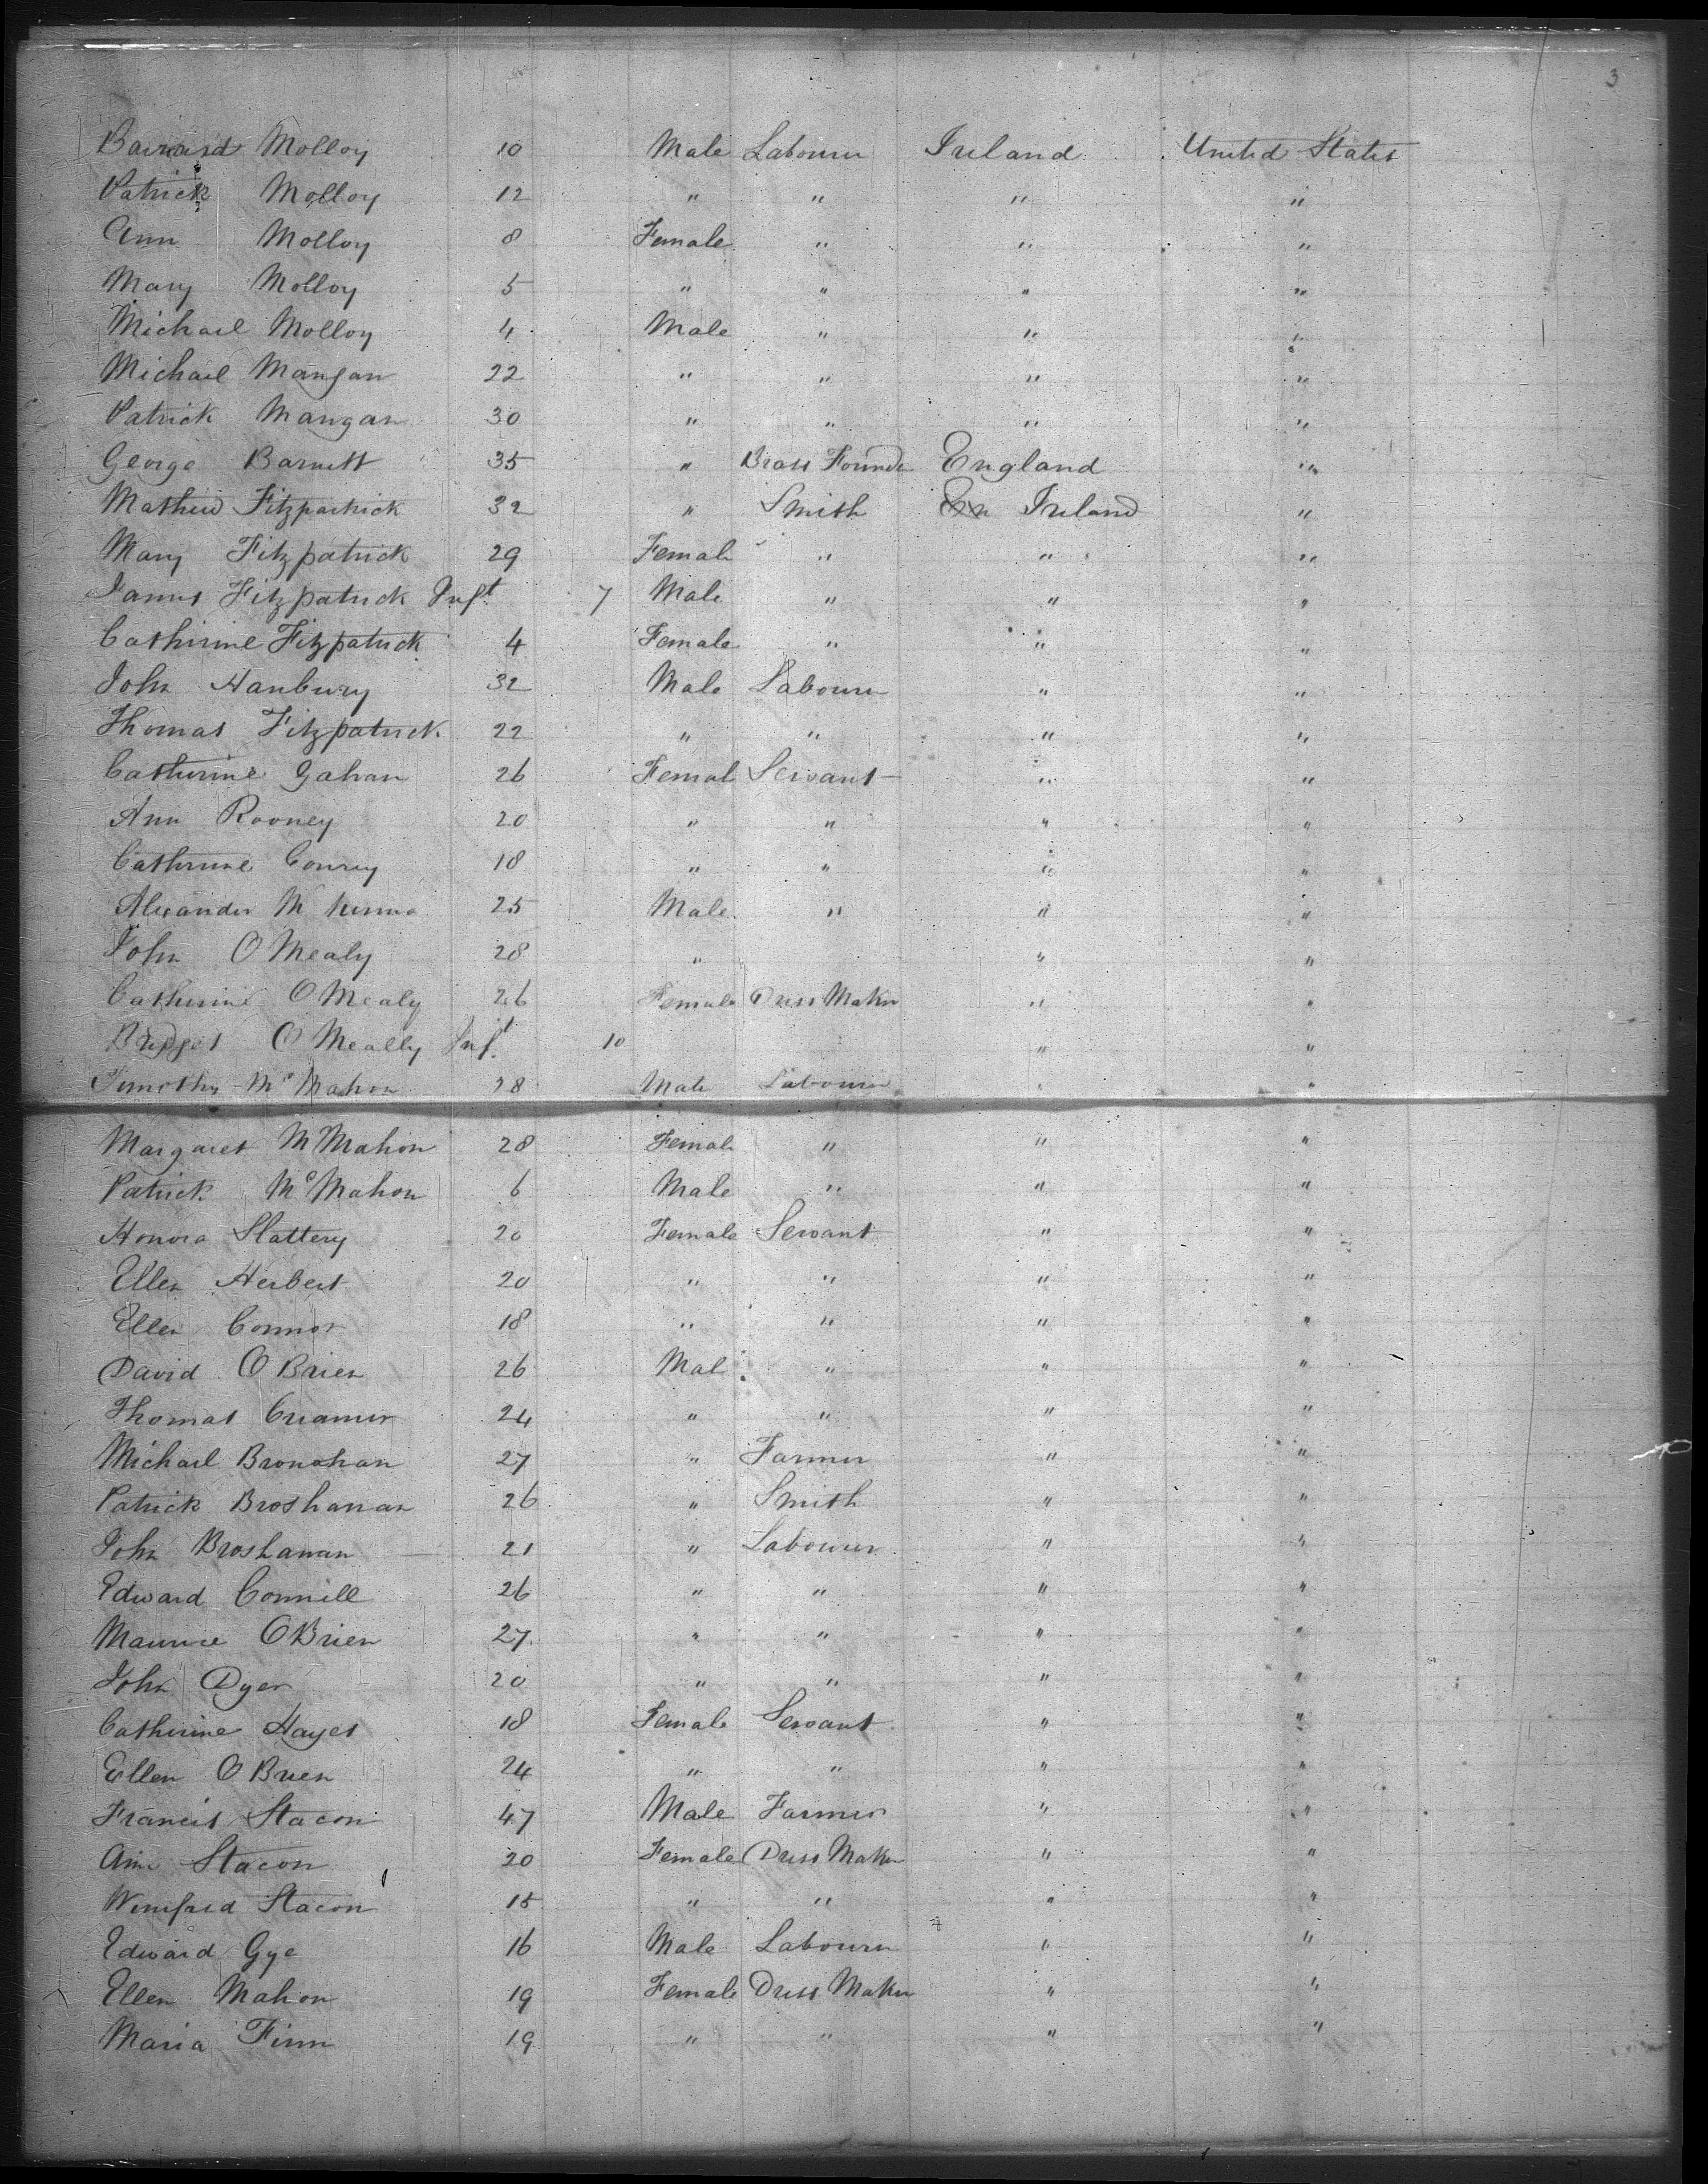 3
Barnard Molloy 10 Male Labourer Ireland United States
Patrick Molloy 12 " " " "
Ann Molloy 8 Female " " "
Mary Molloy 5 " " " "
Michael Molloy 4 Male " " "
Michael Mangan 22 " " " "
Patrick Mangan 30 " " " "
George Barnett 35 " Brass Founder England "
Mathew Fitzpatrick 32 " Smith Ireland "
Mary Fitzpatrick 29 Female " " "
James Fitzpatrick Inft 7 Male " " "
Catherine Fitzpatrick 4 Female " " "
John Hanbury 32 Male Labourer " "
Thomas Fitzpatrick 22 " " " "
Catherine Gahan 26 Femal Servant " "
Ann Rooney 20 " " " "
Catherine Conrey 18 " " " "
Alexander McKenna 25 Male " " "
John O Mealy 28 " " "
Catherine O Mealy 26 Female Dress Maker " "
Bridget O Meally Inft 10 " "
Timothy McMahon 28 Male Labourer " "
Margaret McMahon 28 Female " " "
Patrick McMahon 6 Male " " "
Honora Slattery 20 Female Servant " "
Ellen Herbert 20 " " " "
Ellen Connor 18 " " " "
David O Brien 26 Mal " " "
Thomas Creamer 24 " " " "
Michael Bronahan 27 " Farmer " "
Patrick Broshanan 26 " Smith " "
John Broshanan 21 " Labourer " "
Edward Connill 26 " " " "
Maurice O Brien 27 " " " "
John Dyer 20 " " " "
Catherine Hayes 18 Female Servant " "
Ellen O Brien 24 " " " "
Francis Stacon 47 Male Farmer " "
Ann Stacon 20 Female Dress Maker " "
Winifred Stacon 15 " " " "
Edward Gye 16 Male Labourer " "
Ellen Mahon 19 Female Dress Maker " "
Maria Finn 19 " " " "